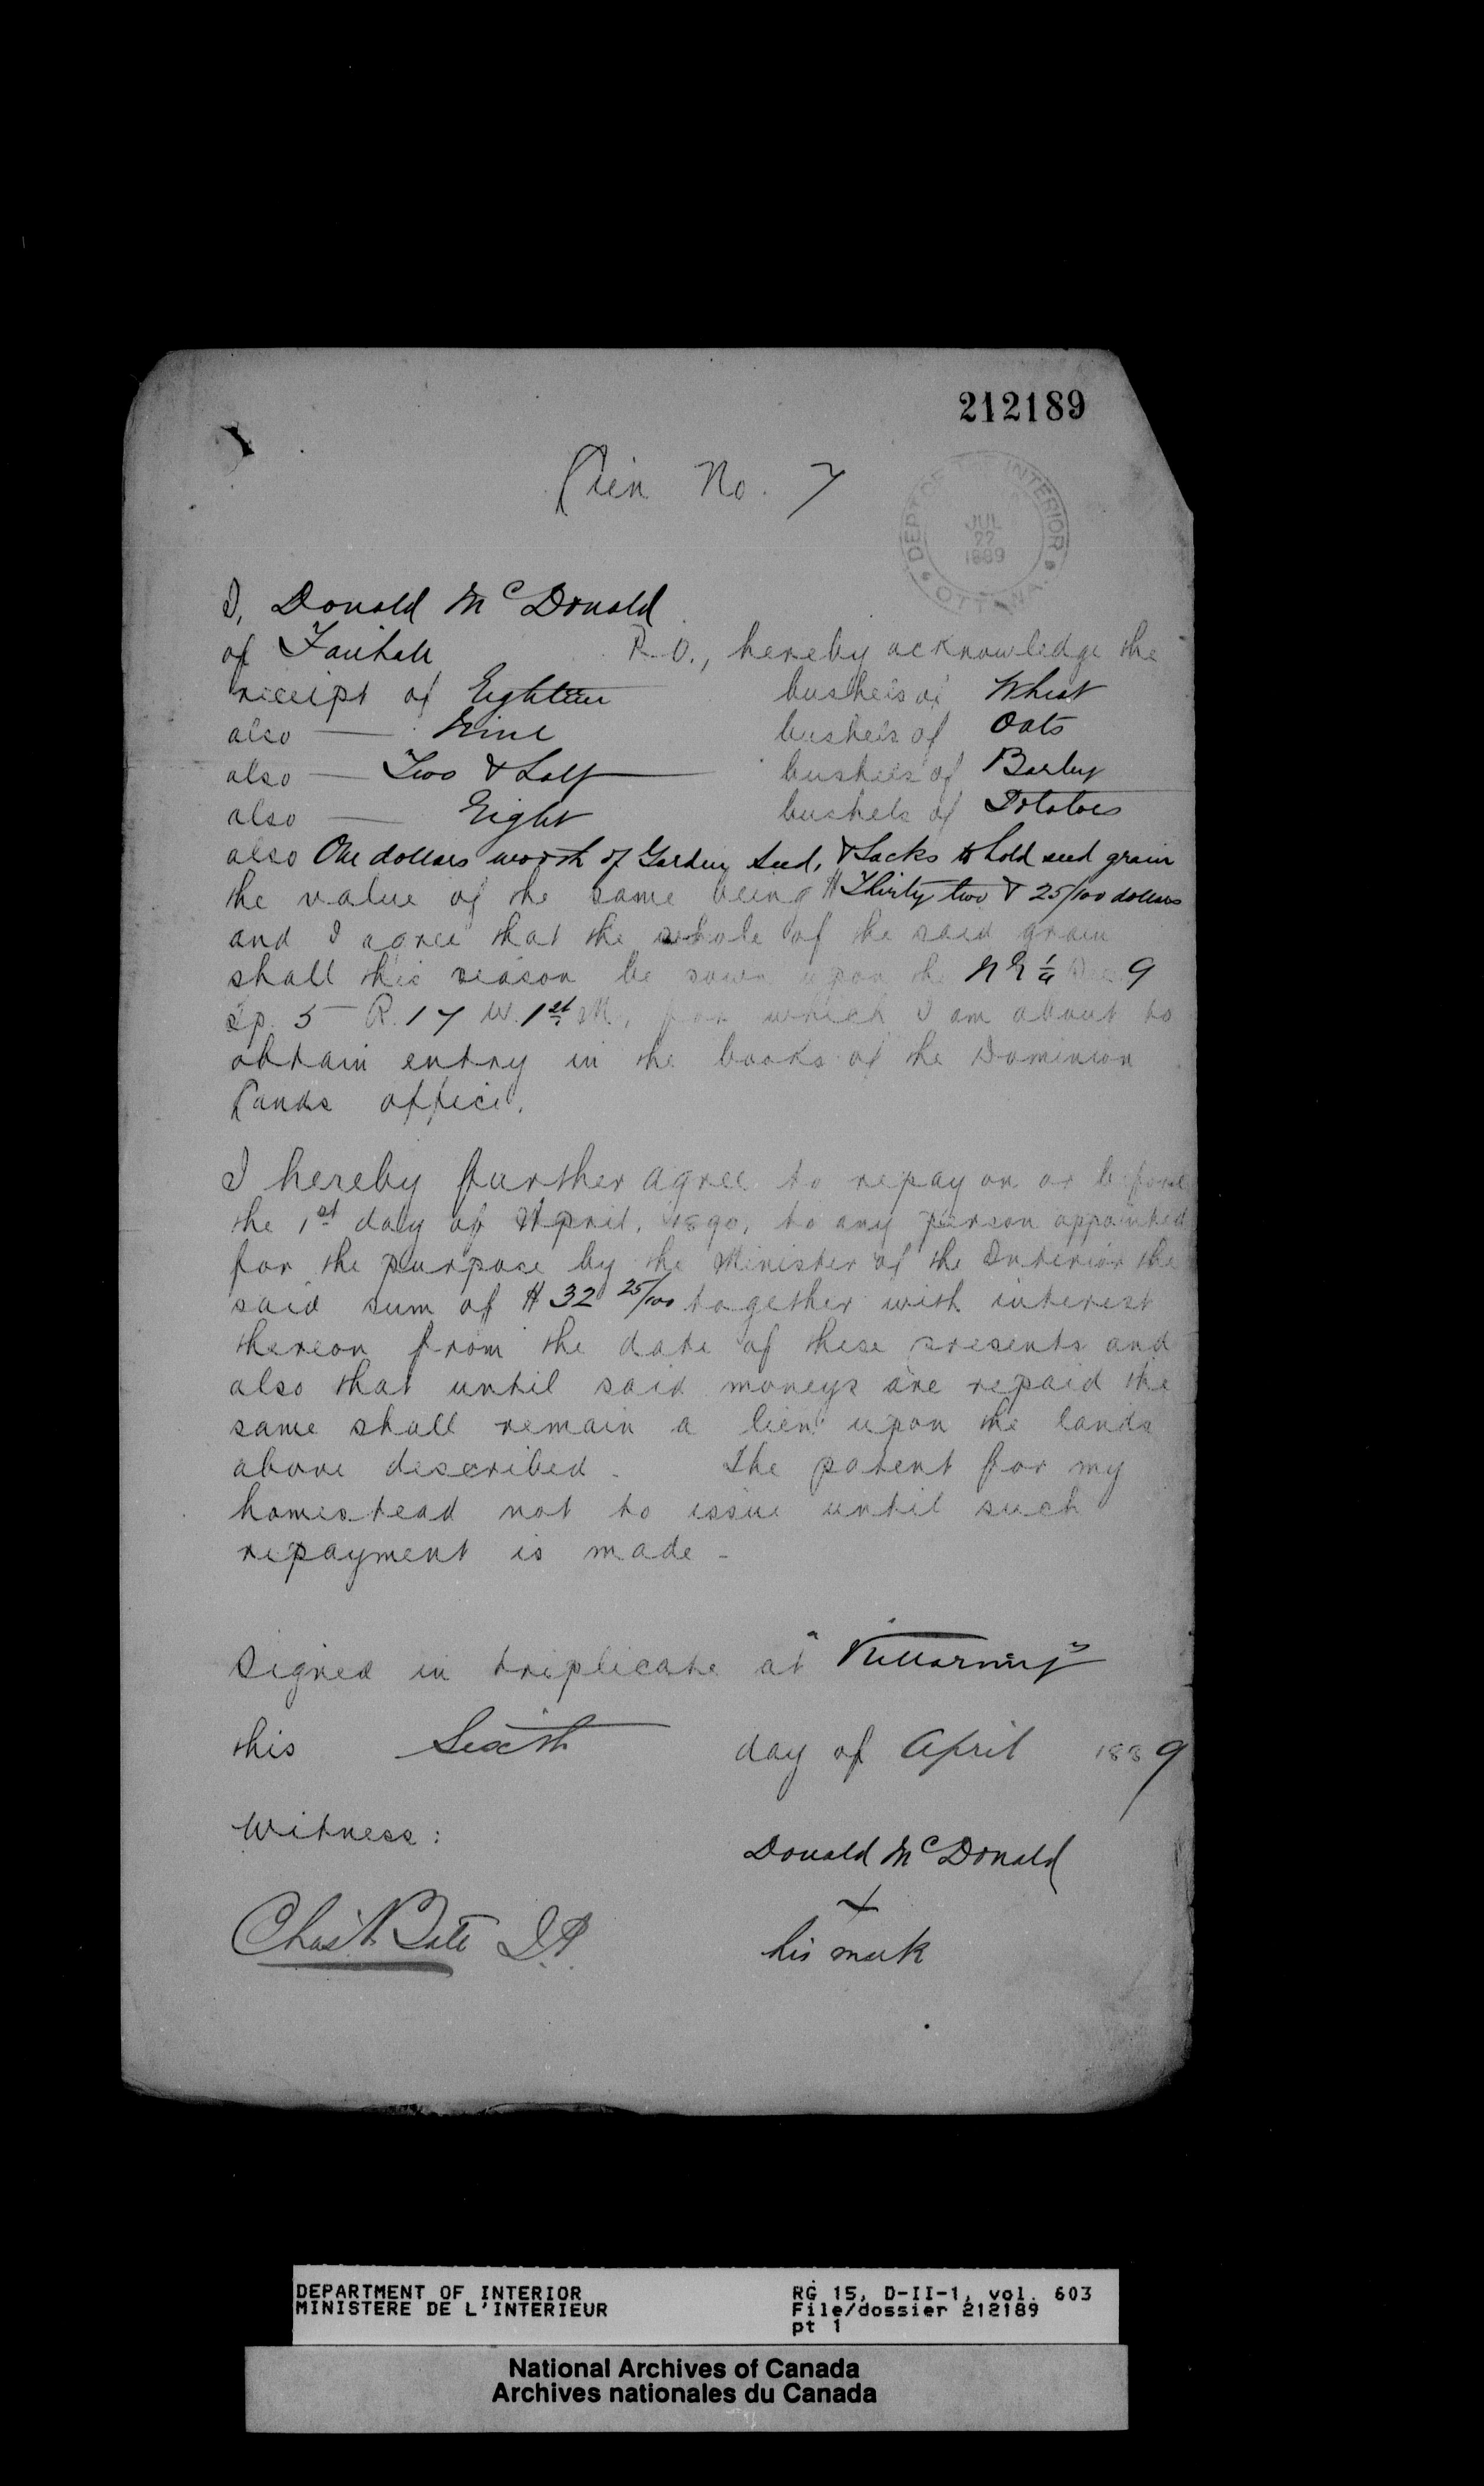 212189
Lien No. 7
DEPT OF THE INTERIOR
JUL
22
1889
OTTAWA
I, Donald McDonald
of Fairhall P.O., hereby acknowledge the
receipt of Eighteen bushels of Wheat
also Nine bushels of Oats
also Two & Half bushels of Barley
also Eight bushels of Potatoes
also One dollars worth of Garden Seed, & Sacks to hold seed grain
the value of the same being $ Thirty two & 25/100 dollars
and I agree that the whole of the said grain
shall this season be sown upon the N E 1/4 Sec 9
Tp. 5 R. 17 W. 1st M, for which I am about to
obtain entry in the books of the Dominion
Lands office.
I hereby further agree to repay on or before
the 1st day of April, 1890, to any person appointed
for the purpose by the Minister of the Interior the
said sum of $ 32 25/100 together with interest
thereon from the date of these presents and
also that until said moneys are repaid the
same shall remain a lien upon the lands
above described. The patent for my
homestead not to issue until such
repayment is made -
Signed in triplicate at "Killarney"
this Sixth day of April 1889
Witness:
Donald McDonald
X
Chas. Bate J.P.
his mark
DEPARTMENT OF INTERIOR RG 15, D-II-1, vol. 603
MINISTERE DE L'INTERIEUR File/dossier 212189
pt 1
National Archives of Canada
Archives nationales du Canada